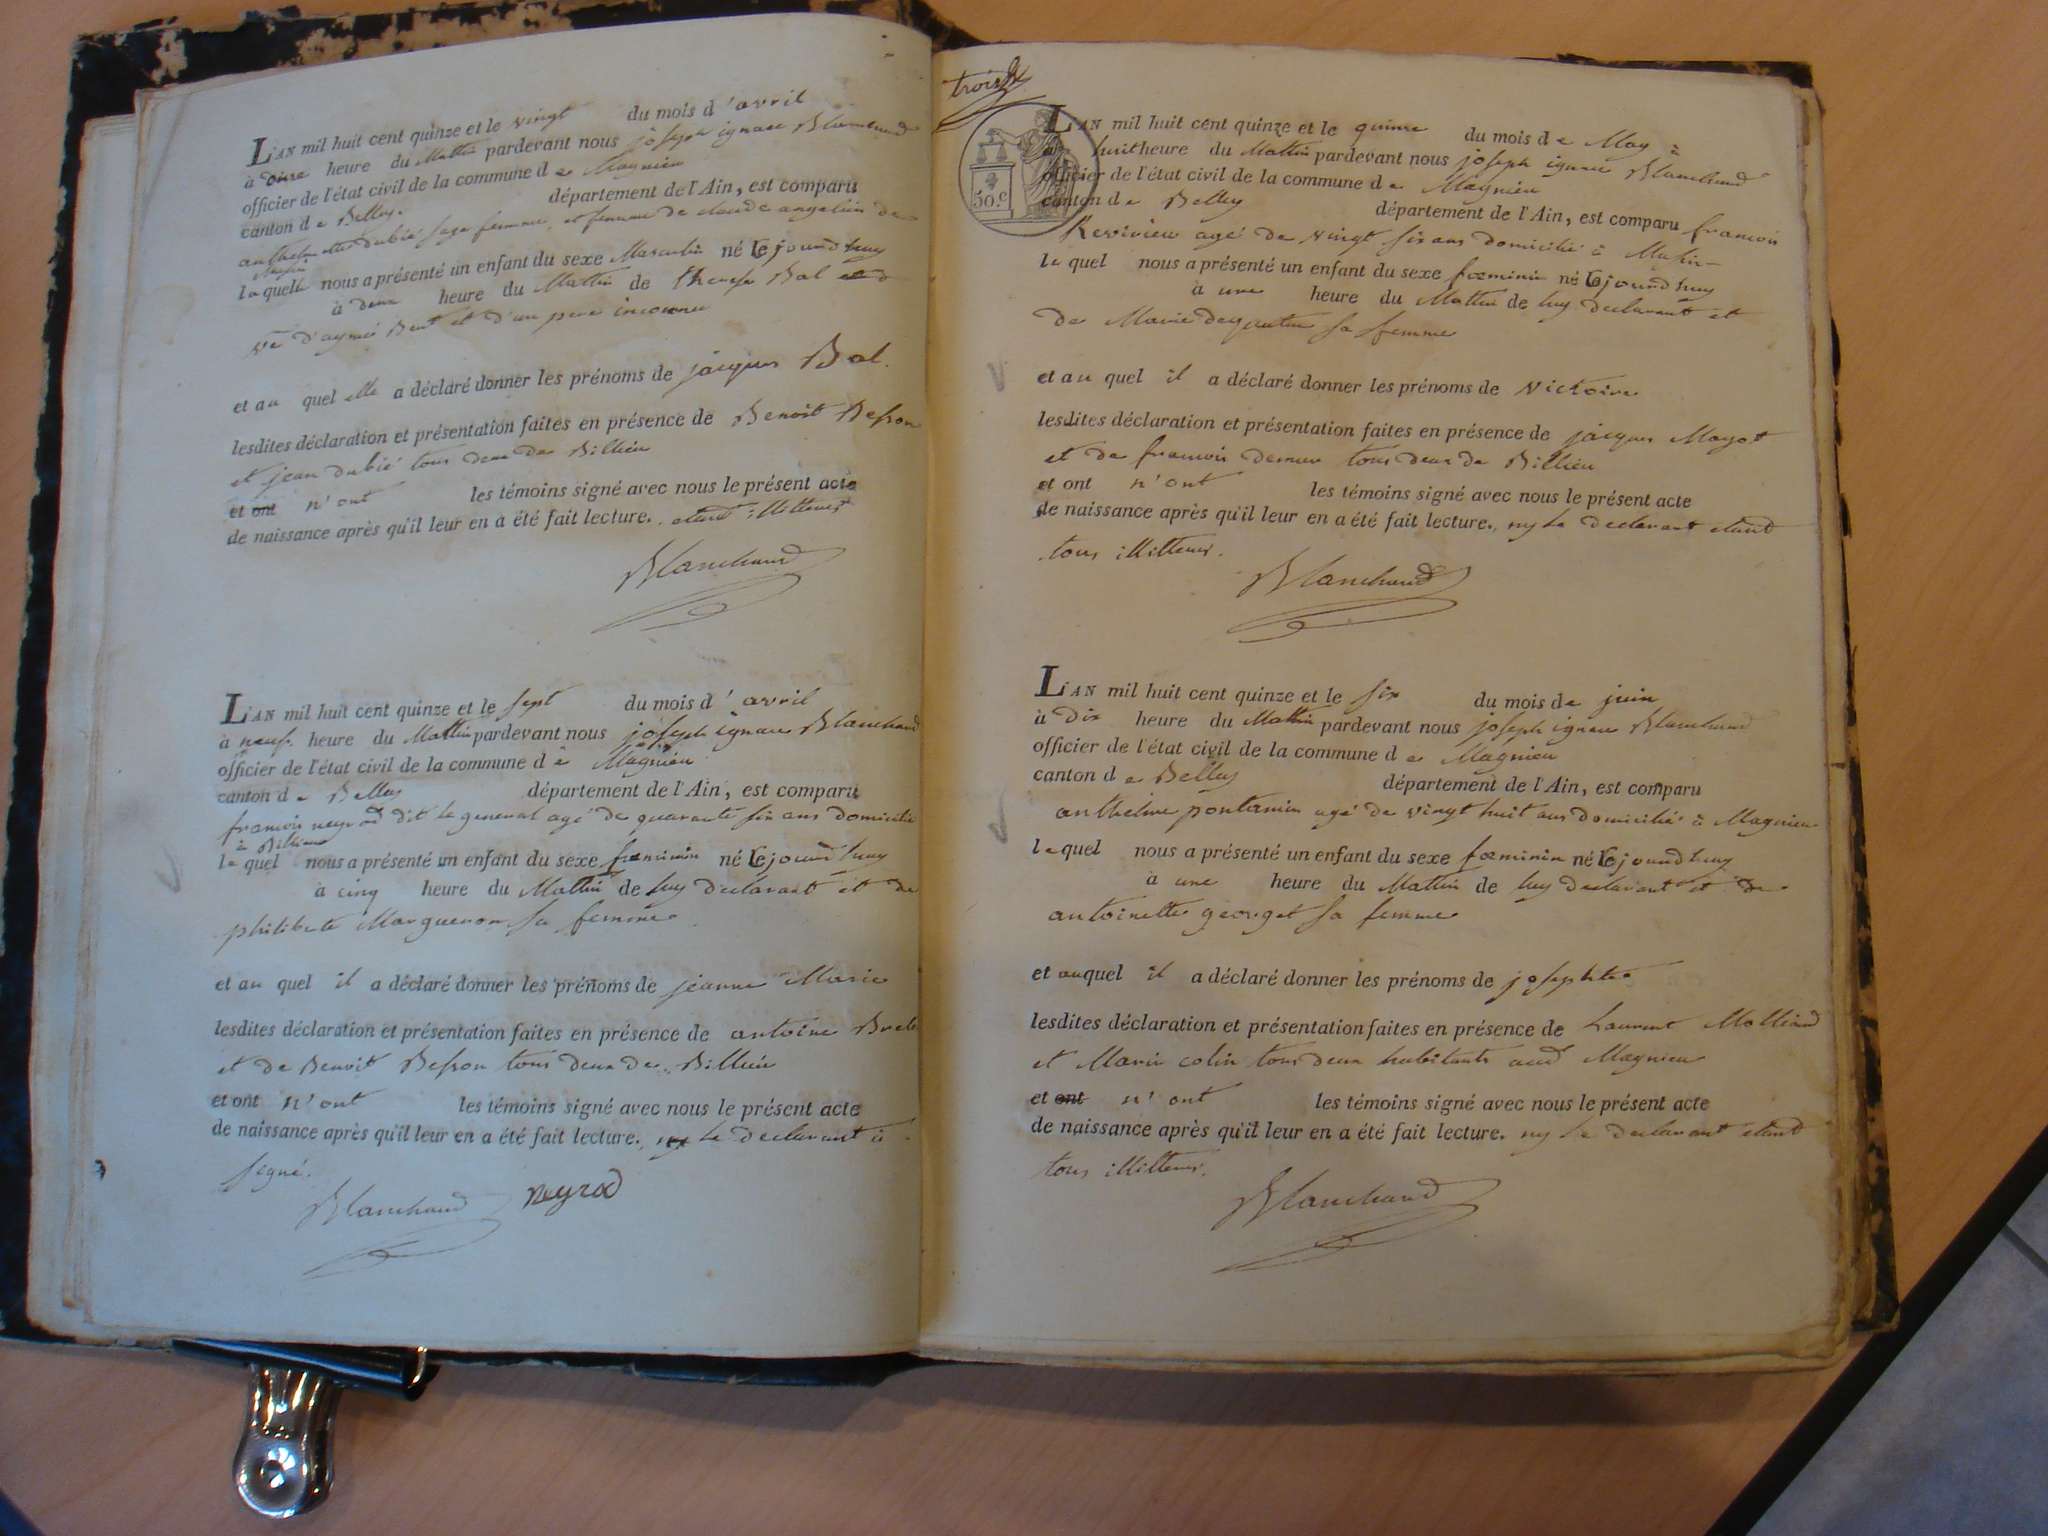 L'AN mil huit cent quinze et le vingt du mois d'avril
à onze heure du Mattin pardevant nous joseph ignace Blanchand
officier de l'état civil de la commune de Magnieu
canton de Belley. département de l'Ain, est comparu
anthelmette dubié sage femme, et femme de claude angelin de
la quelle nous a présenté un enfant du sexe Masculin né lejourdhuy
à deux heure du Mattin de therese Bal
ve d'aymé et d'un pere inconnu
et au quel elle a déclaré donner les prénoms de jacques Bal.
lesdites déclaration et présentation faites en présence de Benoit Besson
et jean dubié tous deux de Billieu
et ont n'ont les témoins signé avec nous le présent acte
de naissance après qu'il leur en a été fait lecture. etant illitterés
Blanchand
L'AN mil huit cent quinze et le sept du mois d'avril
à neuf heure du Mattin pardevant nous joseph ignace Blanchand
officier de l'état civil de la commune de Magnieu
canton de Belley département de l'Ain, est comparu
francois neyrod dit le general agé de quarante six ans domicilié
à Billieu
le quel nous a présenté un enfant du sexe fœminin né lejourdhuy
à cinq heure du Mattin de luy declarant et de
philiberte Marguenon sa femme
et au quel il a déclaré donner les prénoms de jeanne Marie
lesdites déclaration et présentation faites en présence de antoine
et de Benoit Besson tous deux de Billieu
et ont n'ont les témoins signé avec nous le présent acte
de naissance après qu'il leur en a été fait lecture. le declarant à
signé.
Blanchand neyrod
trois
50.c
L'AN mil huit cent quinze et le quinze du mois de May à
à huit heure du Mattin pardevant nous joseph ignace Blanchand
officier de l'état civil de la commune de Magnieu
canton de Belley département de l'Ain, est comparu francois
Revirieu agé de vingt six ans domicilié à
le quel nous a présenté un enfant du sexe fœminin né lejourdhuy
à une heure du Mattin de luy declarant et
de Marie sa femme
et au quel il a déclaré donner les prénoms de Victoire
lesdites déclaration et présentation faites en présence de jacques
et de francois tous deux de Billieu
et ont n'ont les témoins signé avec nous le présent acte
de naissance après qu'il leur en a été fait lecture. ny le declarant etant
tous illitterés.
Blanchand
L'AN mil huit cent quinze et le six du mois de juin
à Dix heure du Mattin pardevant nous joseph ignace Blanchand
officier de l'état civil de la commune de Magnieu
canton de Belley département de l'Ain, est comparu
anthelme pontanin agé de vingt huit ans domicilié à Magnieu
le quel nous a présenté un enfant du sexe fœminin né lejourdhuy
à une heure du Mattin de luy declarant et de
antoinette georget sa femme
et auquel il a déclaré donner les prénoms de josephte
lesdites déclaration et présentation faites en présence de Laurent Molliand
et Marin colin tous deux habitants aud Magnieu
et ont n'ont les témoins signé avec nous le présent acte
de naissance après qu'il leur en a été fait lecture. ny le declarant etant
tous illitterés.
Blanchand